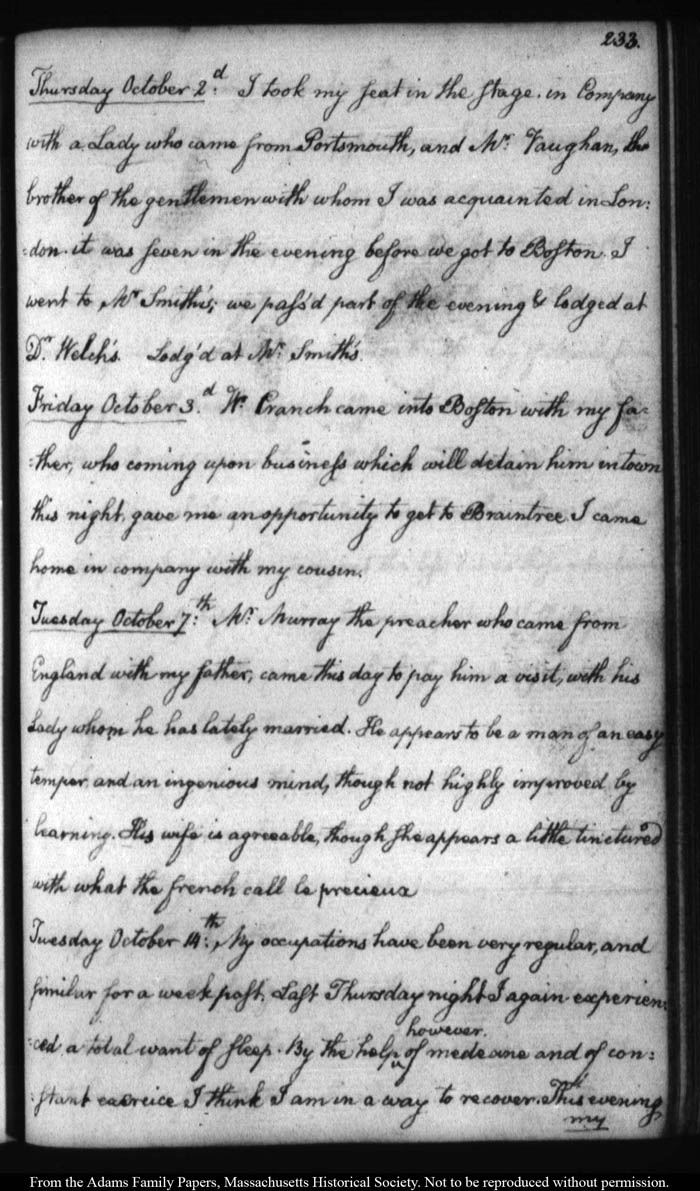 233.
Thursday October 2.d I took my seat in the stage. in Company
with a Lady who came from Portsmouth, and Mr. Vaughan, the
brother of the gentlemen with whom I was acquainted in Lon:
:don. it was seven in the evening before we got to Boston. I
went to Mr Smith's; we pass'd part of the evening & lodged at
Dr. Welch's. Lodg'd at Mr. Smith's.
Friday October 3.d Wm. Cranch came into Boston with my fa-
:ther, who coming upon business which will detain him in town
this night, gave me an opportunity to get to Braintree. I came
home in company with my cousin.
Tuesday October 7.th Mr. Murray the preacher who came from
England with my father, came this day to pay him a visit, with his
Lady whom he has lately married. He appears to be a man of an easy
temper, and an ingenious mind, though not highly improved by
learning. His wife is agreeable, though she appears a little tinctured
with what the french call le precieux
Tuesday October 14.th, My occupations have been very regular, and
similar for a week past. Last Thursday night I again experien:
:ced a total want of sleep. By the help ^ however. of medecine and of con:
:stant exercice I think I am in a way to recover. This evening
my
From the Adams Family Papers, Massachusetts Historical Society. Not to be reproduced without permission.